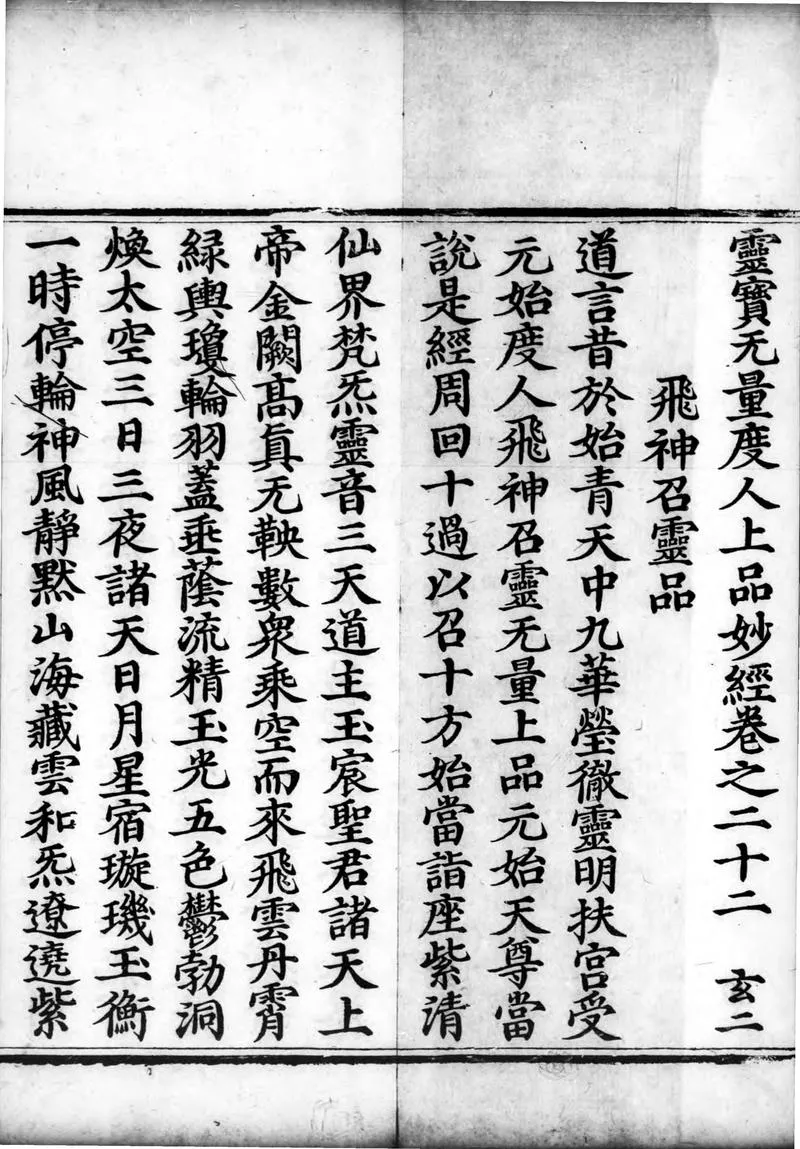 靈寶无量度人上品妙經卷之二十二　玄二
飛神召靈品
道言昔於始青天中九華瑩徹靈明扶宮受
元始度人飛神召靈无量上品元始天尊當
說是經周回十過以召十方始當詣座紫清
仙界梵炁靈音三天道主玉宸聖君諸天上
帝金闕高眞无鞅數衆乘空而來飛雲丹霄
綠輿瓊輪羽蓋垂蔭流精玉光五色鬱勃洞
煥太空三日三夜諸天日月星宿璇璣玉衡
一時停輪神風靜默山海藏雲和炁遼遶紫